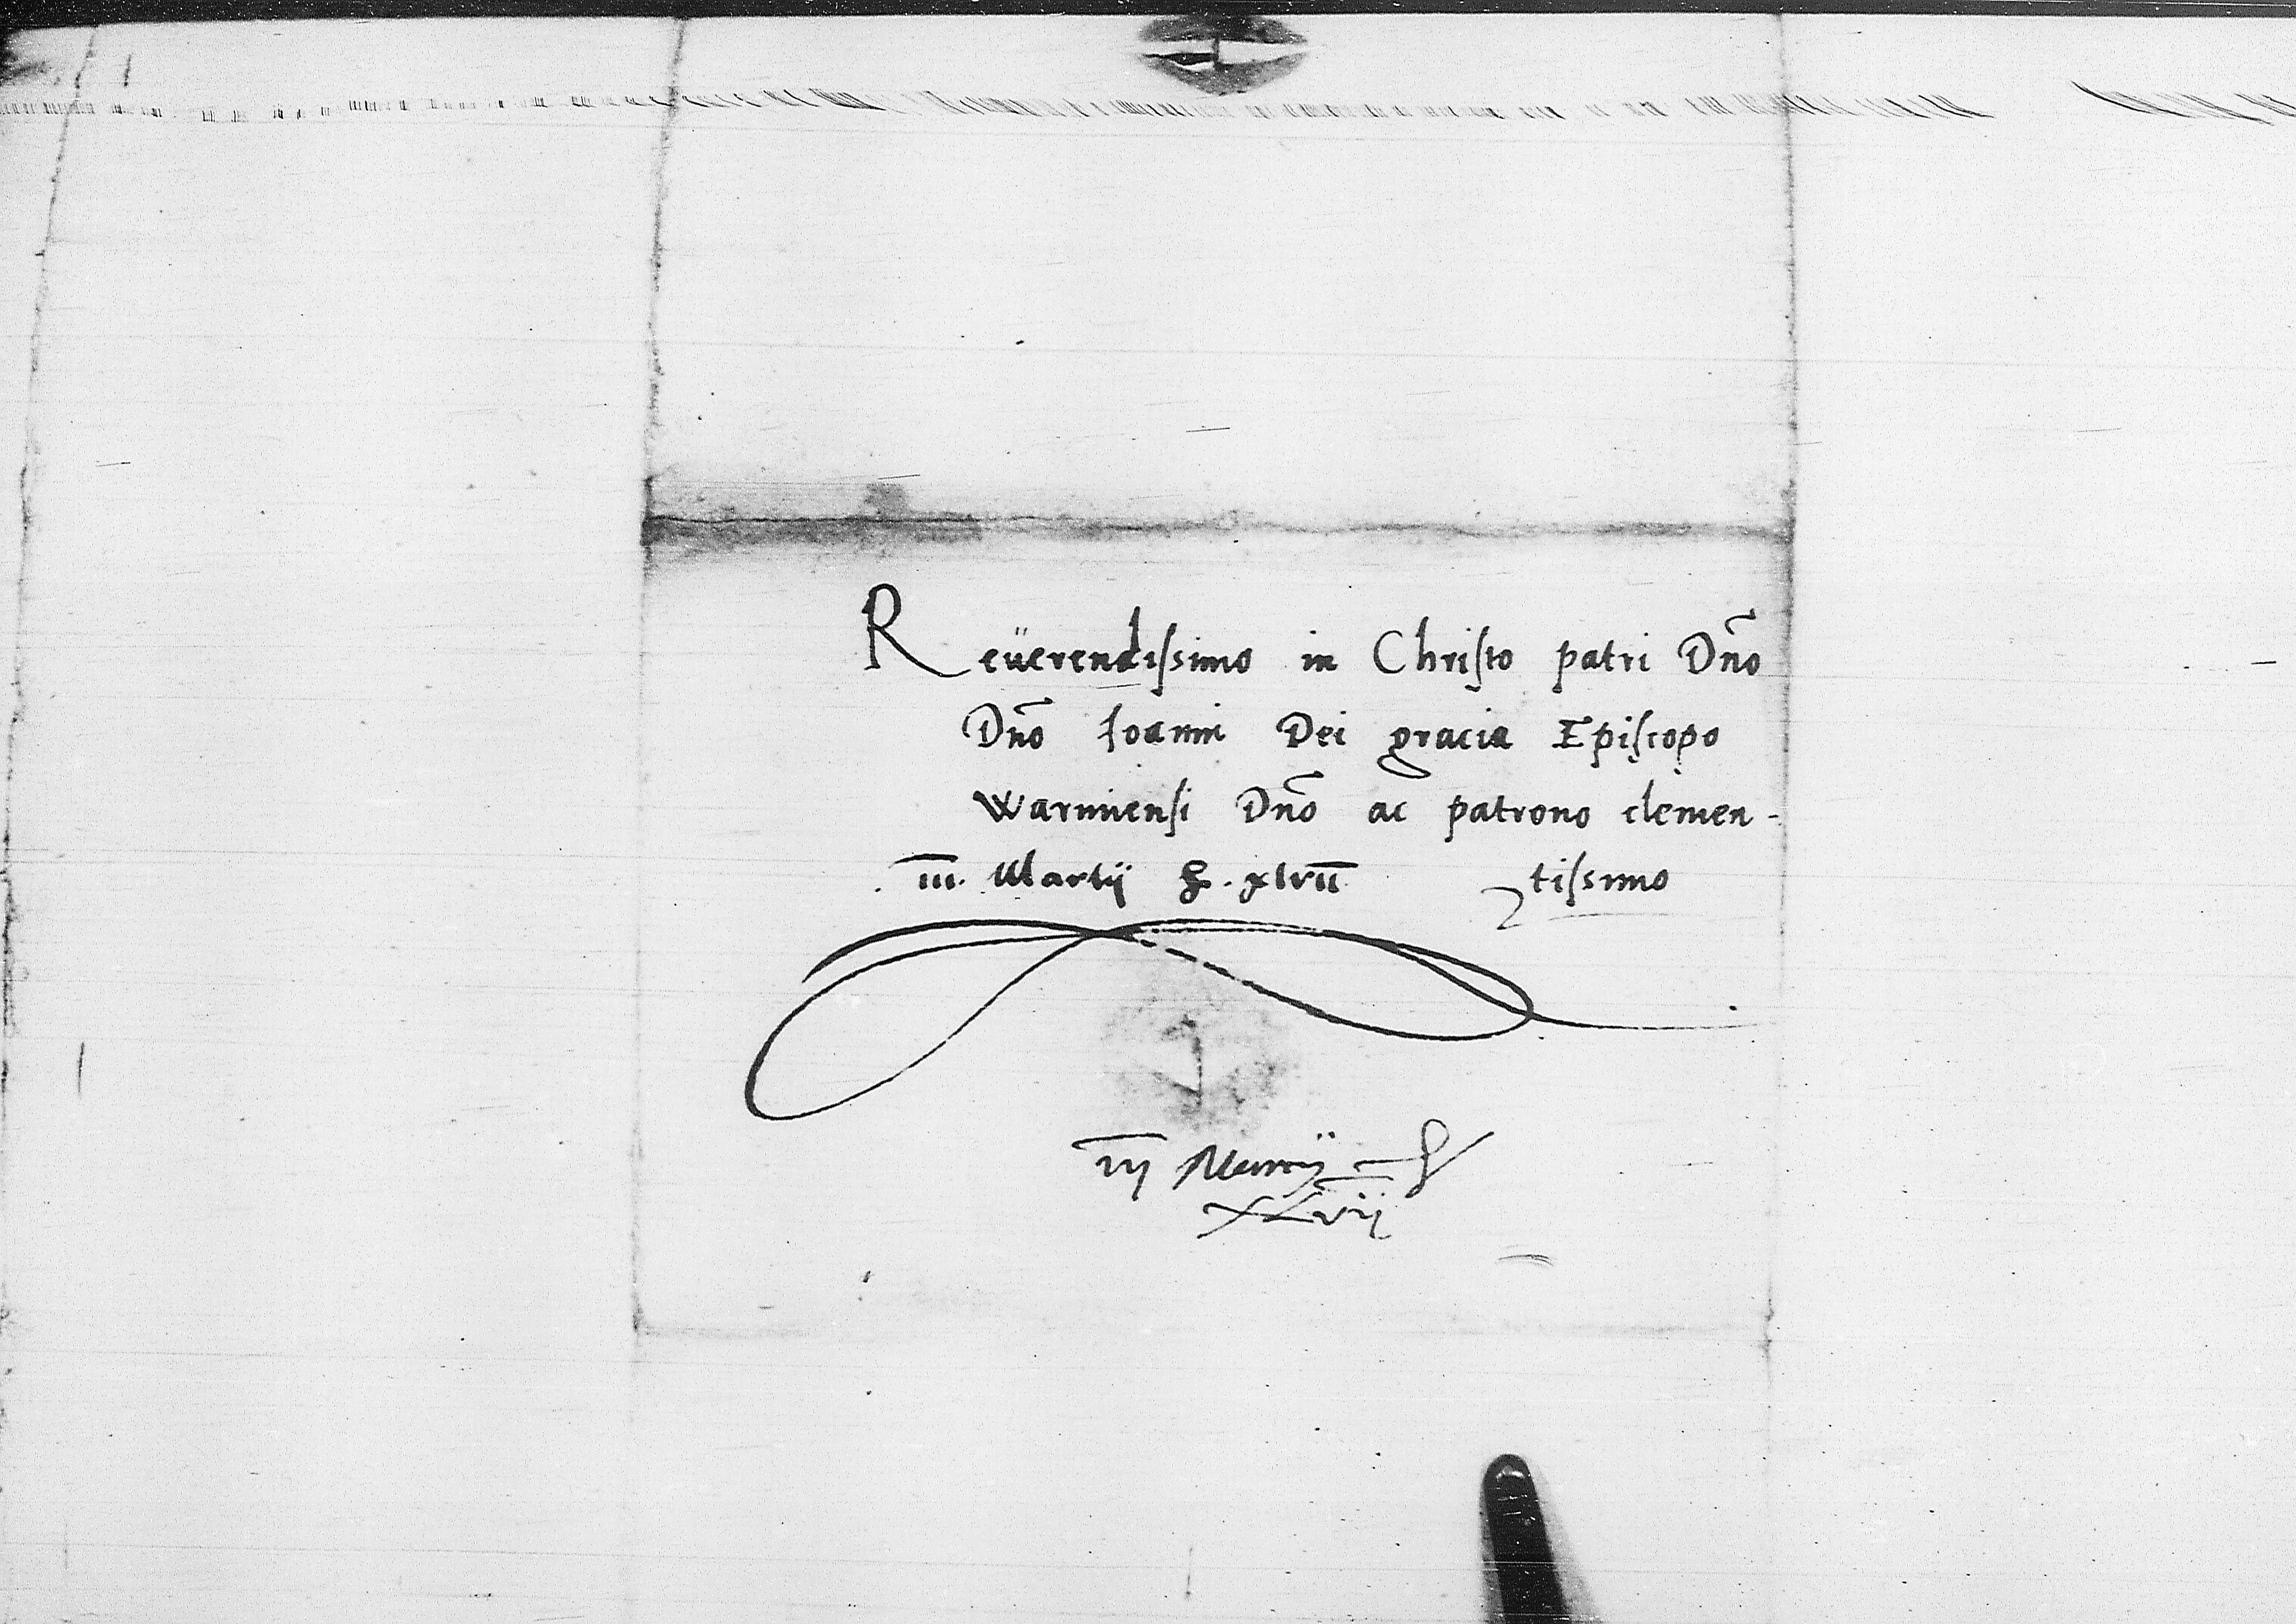 Reüerendiſsimo in Chriſto patri Dño
Dño Ioanni Dei gracia Epiſcopo
Warmienſi Dño ac patrono clemen-
tiſsimo
.iii. Martij .xlvii
iij Marcij
xlvij